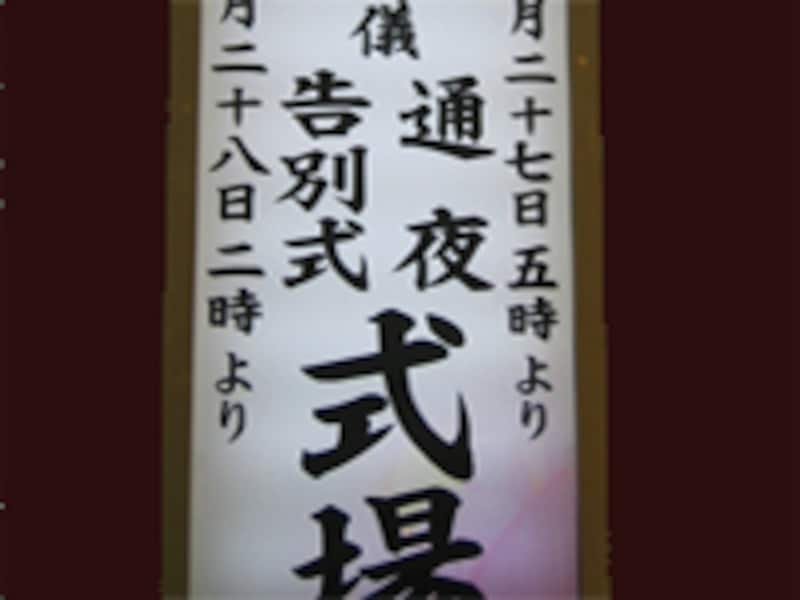 月二十七日五時より
儀
通夜
告別式
式場
月二十八日二時より